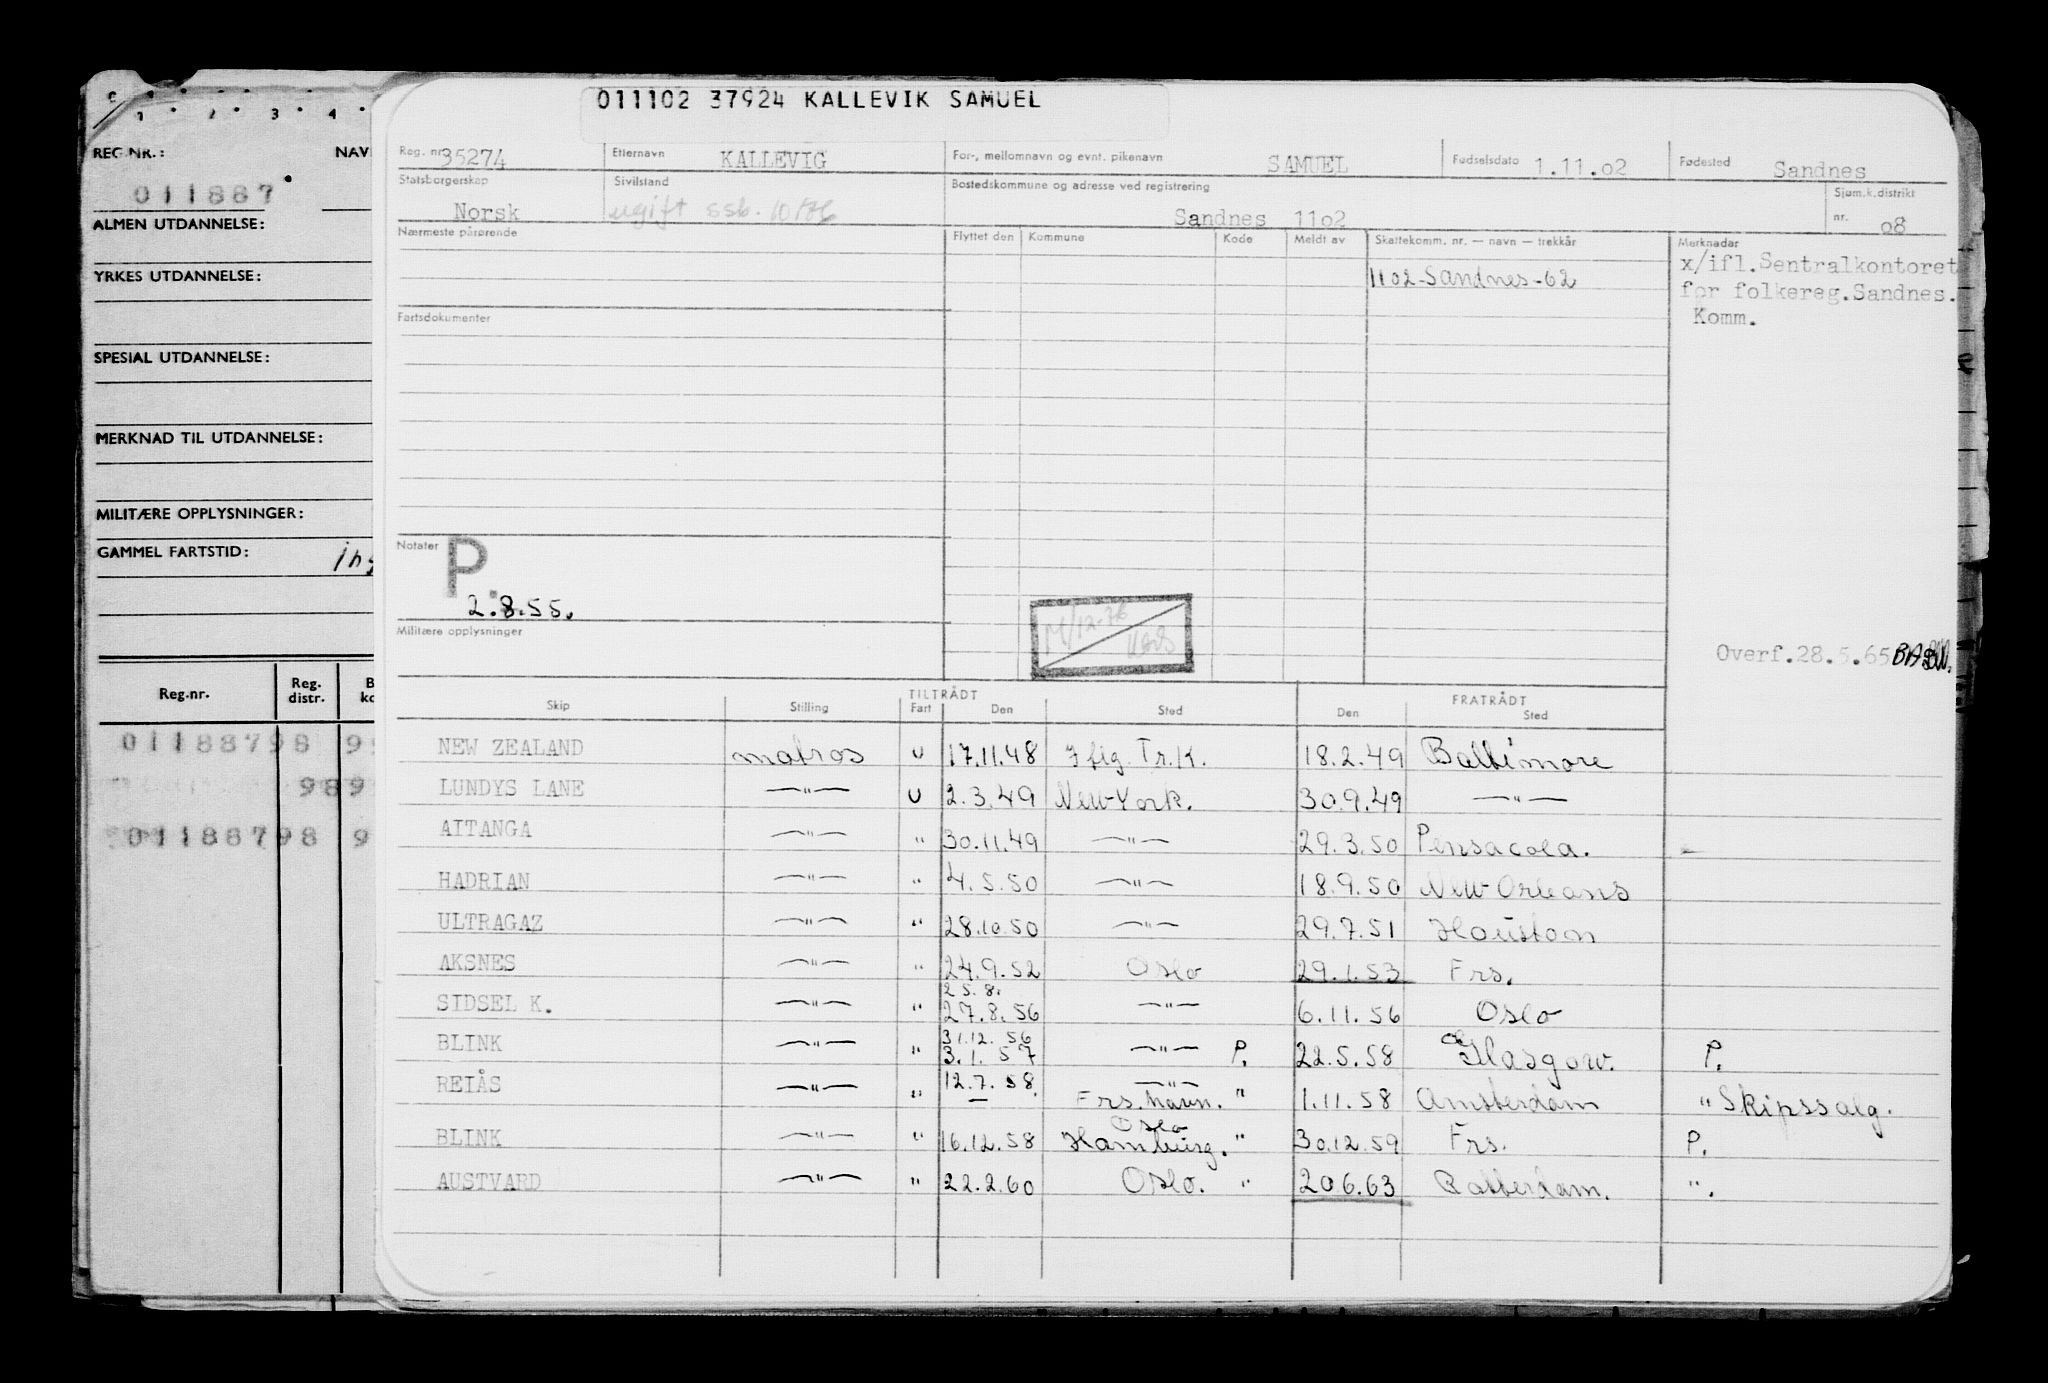 011102 37924 KALLEVIK SAMUEL
1 2 3 4
REG.NR.: NAV
011887
ALMEN UTDANNELSE:
YRKES UTDANNELSE:
SPESIAL UTDANNELSE:
MERKNAD TIL UTDANNELSE:
MILITÆRE OPPLYSNINGER:
GAMMEL FARTSTID:
Reg.nr. Reg. distr.
01188798 9
989
01188798 9
Reg. nr. 35274 Etternavn KALLEVIG For-, mellomnavn og evnt. pikenavn SAMUEL Fødselsdato 1.11.02 Fødested Sandnes
Statsborgerskap Norsk Sivilstand ugift ssb. 10/76 Bostedskommune og adresse ved registrering Sandnes 1102 Sjøm.k.distrikt nr. 08
Nærmeste pårørende Flyttet den Kommune Kode Meldt av Skattekomm. nr. — navn — trekkår Merknader
1102-Sandnes-62
x/ifl.Sentralkontoret
for folkereg.Sandnes.
Komm.
Fartsdokumenter
Notater P.
2.8.55.
12-76
Militære opplysninger
Overf.28.5.65
TILTRÅDT FRATRÅDT
Skip Stilling Fart Den Sted Den Sted
NEW ZEALAND matros u 17.11.48 Iflg. Tr.K. 18.2.49 Baltimore
LUNDYS LANE —"— u 2.3.49 New York. 30.9.49 —"—
AITANGA —"— " 30.11.49 —"— 29.3.50 Pensacola.
HADRIAN —"— " 4.5.50 —"— 18.9.50 New Orleans
ULTRAGAZ —"— " 28.10.50 —"— 29.7.51 Houston
AKSNES —"— " 24.9.52 Oslo 29.1.53 Frs.
25.8.
SIDSEL K. —"— " 27.8.56 —"— 6.11.56 Oslo
31.12.56
BLINK —"— " 3.1.57 —"— P. 22.5.58 Glasgow. P.
REIÅS —"— " 12.7.58. —"—
— Frs. havn. " 1.11.58 Amsterdam " Skipssalg.
Oslo
BLINK —"— " 16.12.58 Hamburg. " 30.12.59 Frs. P.
AUSTVARD —"— " 22.2.60 Oslo. " 20.6.63 Rotterdam. ".